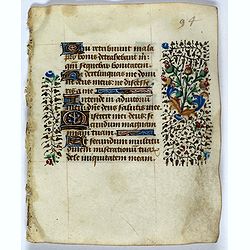 94
Qui retribuunt mala
pro bonis detrahebant m
qm̄ sequebar bonitatem
Ne derelinquas me domi
ne deus meus: ne discesse
ris a me
Intende in adiutoriū
meū dn̄e deus salutis mee
Miserere mei deus: se
cundum magnam
mīam tuam
Et secundum multitu
dinem miserationū tuarū
dele iniquitatem meam